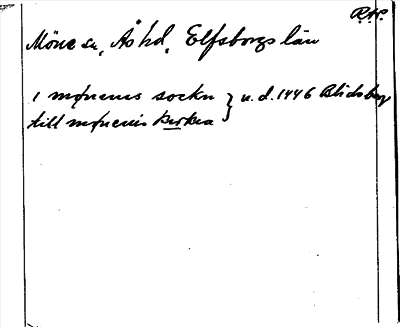 R.H.P.
Möne sn, Ås hd, Elfsborgs län
i mønenes sockn } u.d. 1446 Blidsberg
till mønenis kirkia